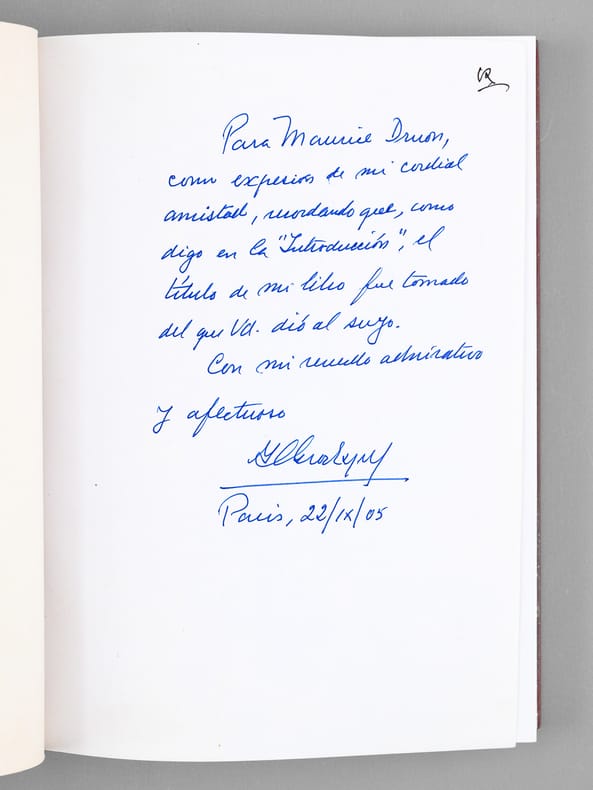 Para Maurice Druon,
como expresión de mi cordial
amistad, recordando que, como
digo en la "Introducción", el
título de mi libro fue tomado
del que Vd. dió al suyo.
Con mi recuerdo admirativo
y afectuoso
Paris, 22/IX/05